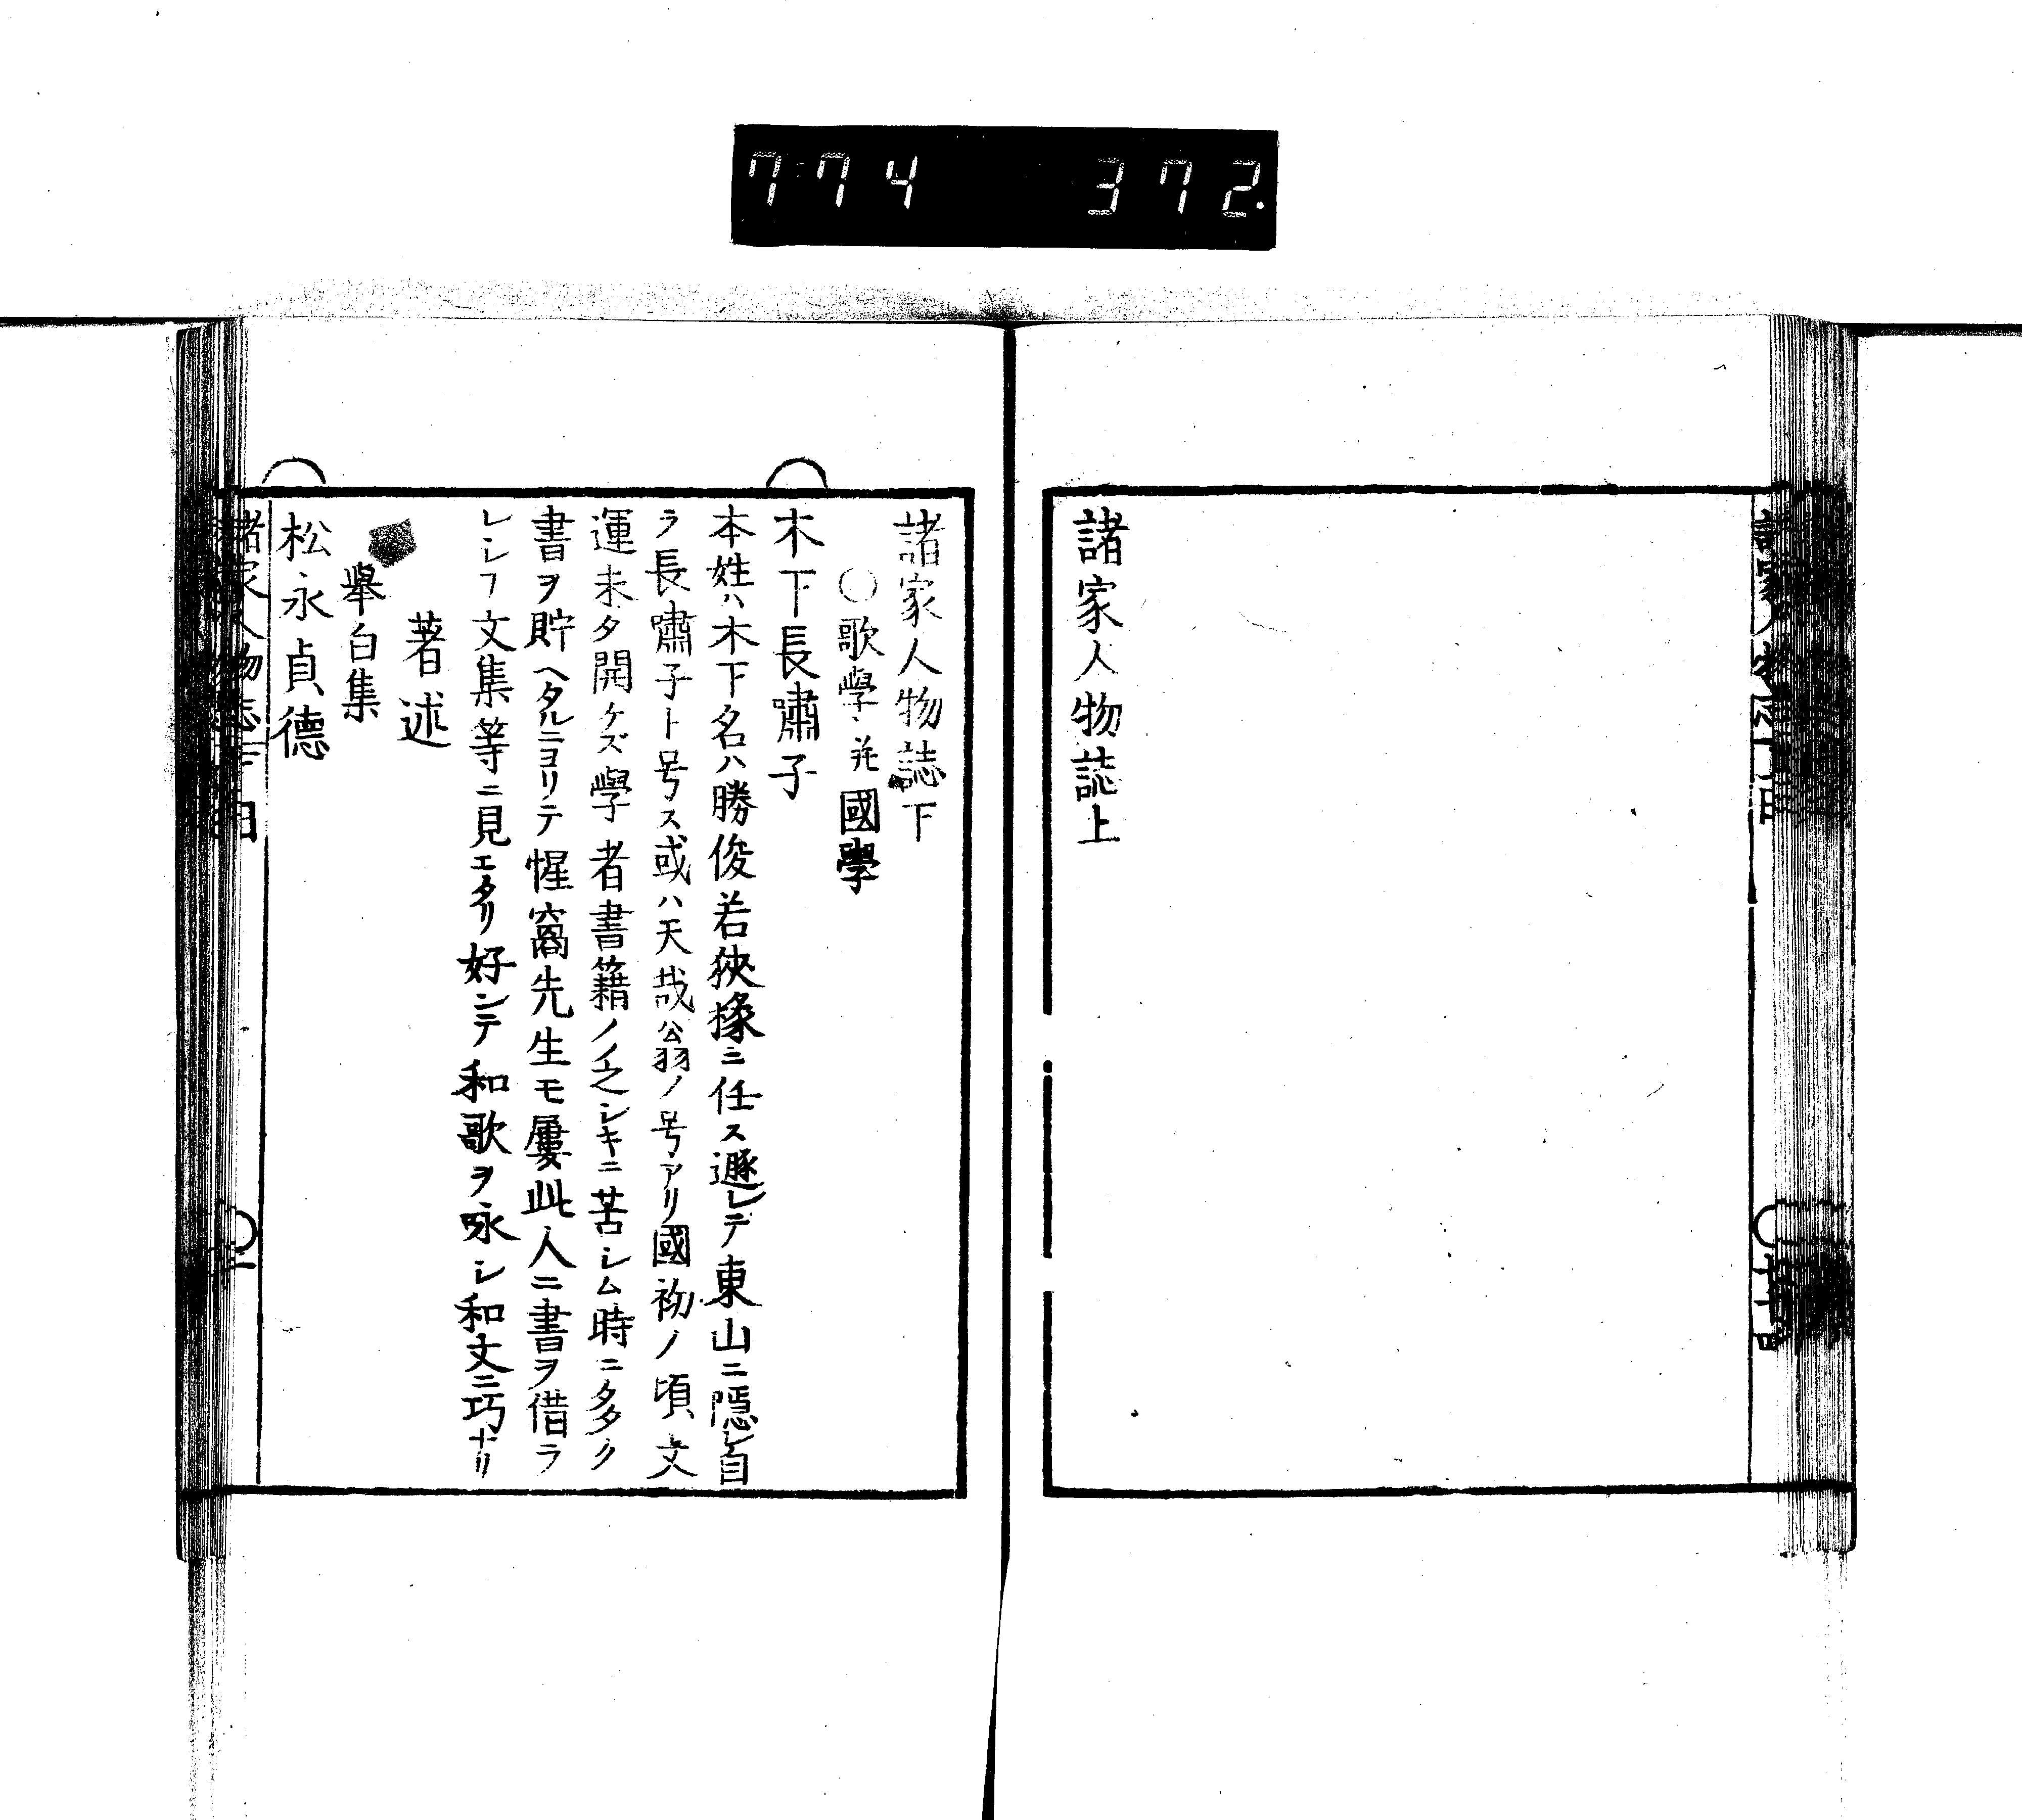 774 372.
諸家人物誌上
諸家人物誌下
○歌學並國學
木下長嘯子
本姓ハ木下名ハ勝俊若狹掾ニ任ス遯レテ東山ニ隱レ自
ラ長嘯子ト号ス或ハ天哉翁ノ号アリ國初ノ頃文
運未タ開ケズ學者書籍ノ乏シキニ苦シム時ニ多ク
書ヲ貯ヘタルニヨリテ惺窩先生モ屢此人ニ書ヲ借ラ
レシフ文集等ニ見エタリ好ンテ和歌ヲ咏シ和文ニ巧ナリ
著述
擧白集
松永貞德